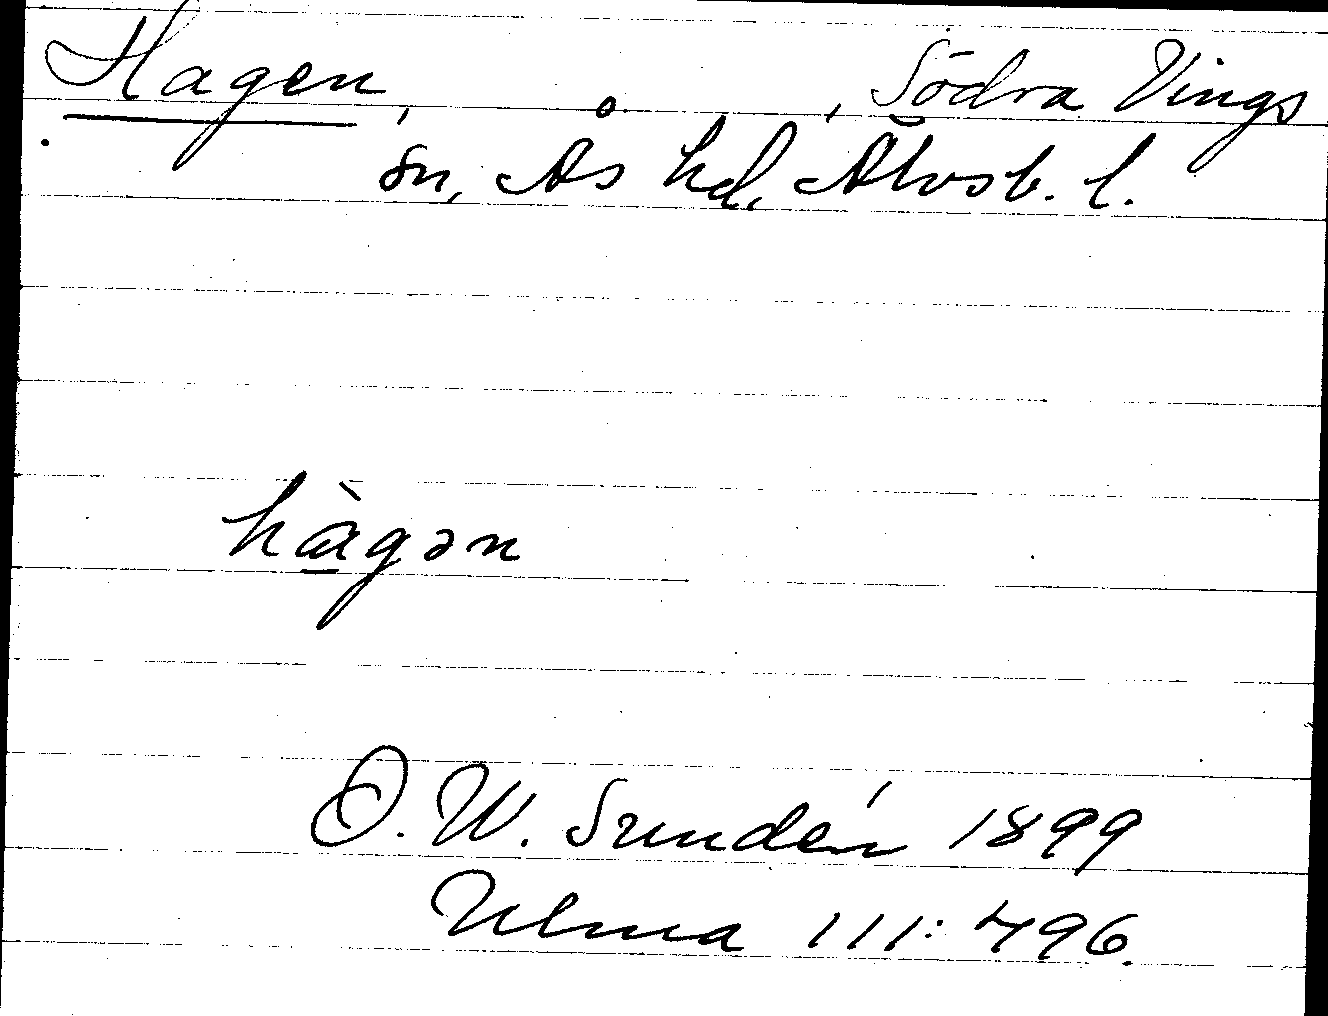 Hagen, , Södra Vings
sn, Ås hd, Älvsb. l.
hàgən
D. W. Sundén 1899
Ulma 111:496.